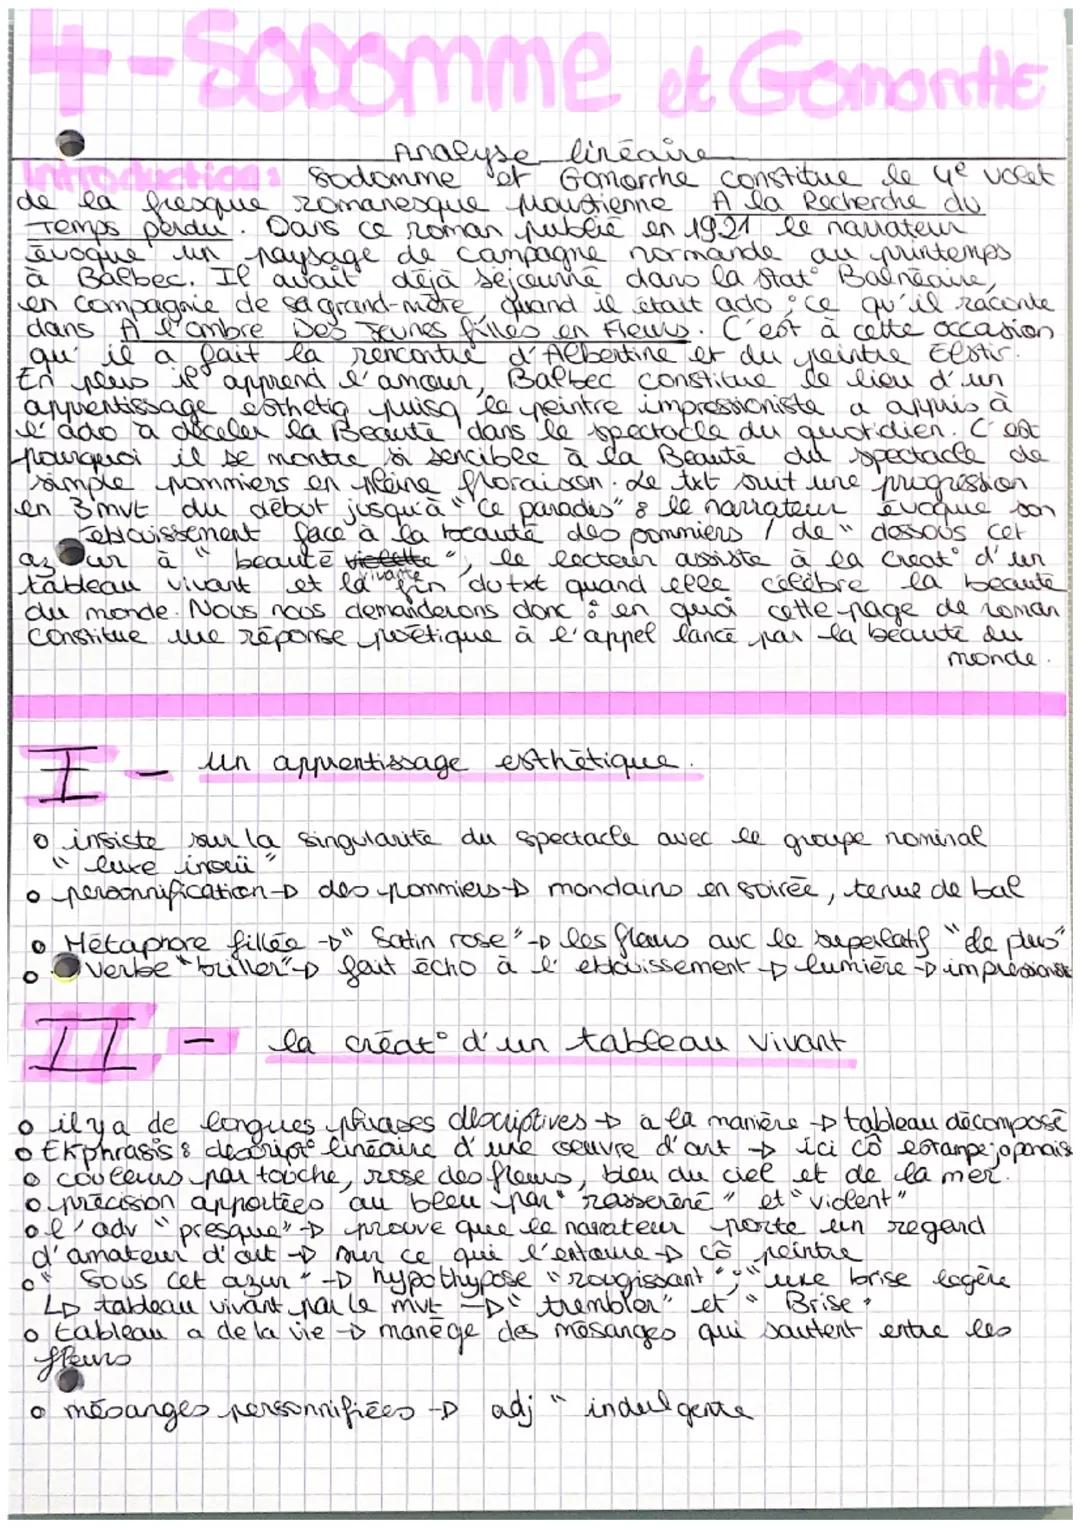 4-Sodomme et Gomorrhe
Analyse linéaire
Introduction: Sodomme et Gomorrhe constitue le 4e volet
de la fresque romanesque proustienne A la Recherche du
Temps perdu. Dans ce roman publié en 1921 le narrateur
évoque un paysage de campagne normande au printemps
à Balbec. Il avait déjà séjourné dans la stat° Balnéaire,
en compagnie de sa grand-mère, quand il était ado ; ce qu'il raconte
dans A l'ombre Des Jeunes filles en Fleurs. C'est à cette occasion
qu'il a fait la rencontre d'Albertine et du peintre Elstir.
En plus il apprend l'amour, Balbec constitue le lieu d'un
apprentissage esthétiq puisq le peintre impressioniste a appris à
l'ado à déceler la Beauté dans le spectacle du quotidien. C'est
pourquoi il se montre si sencible à la Beauté du spectacle de
simple pommiers en pleine floraison. Le txt suit une progression
en 3 mvt du début jusqu'à "Ce paradis" : le narrateur évoque son
éblouissement face à la beauté des pommiers / de "dessous cet
azur à "beauté violette", le lecteur assiste à la creat° d'un
vivante
tableau vivant et la fin du txt quand elle célèbre la beauté
du monde. Nous nous demanderons donc : en quoi cette page de roman
constitue une réponse poétique à l'appel lancé par la beauté du
monde.
I - Un apprentissage esthétique.
o insiste sur la singularité du spectacle avec le groupe nominal
"luxe inouï"
o personnification -> des pommiers -> mondains en soirée, tenue de bal
o Métaphore fillée -> "Satin rose" -> les fleurs avc le superlatif "le plus"
o verbe "briller" -> fait écho à l'éblouissement -> lumière -> impressionist
II - la créat° d'un tableau vivant
o il y a de longues phrases descriptives -> à la manière -> tableau décomposé
o Ekphrasis : descript° linéaire d'une oeuvre d'art -> ici cô estampe japonais
o couleurs par touche, rose des fleurs, bleu du ciel et de la mer.
o précision apportées au bleu par "rasséréné" et "violent"
o l'adv "presque" -> prouve que le narrateur porte un regard
d'amateur d'art -> sur ce qui l'entoure -> cô peintre
o "Sous cet azur" -> hypothypose "rougissant" ; "une brise légère
L> tableau vivant par le mvt -> "trembler" et "Brise"
o tableau a de la vie -> manège des mésanges qui sautent entre les
fleurs
o mésanges personnifiées -> adj "indulgente